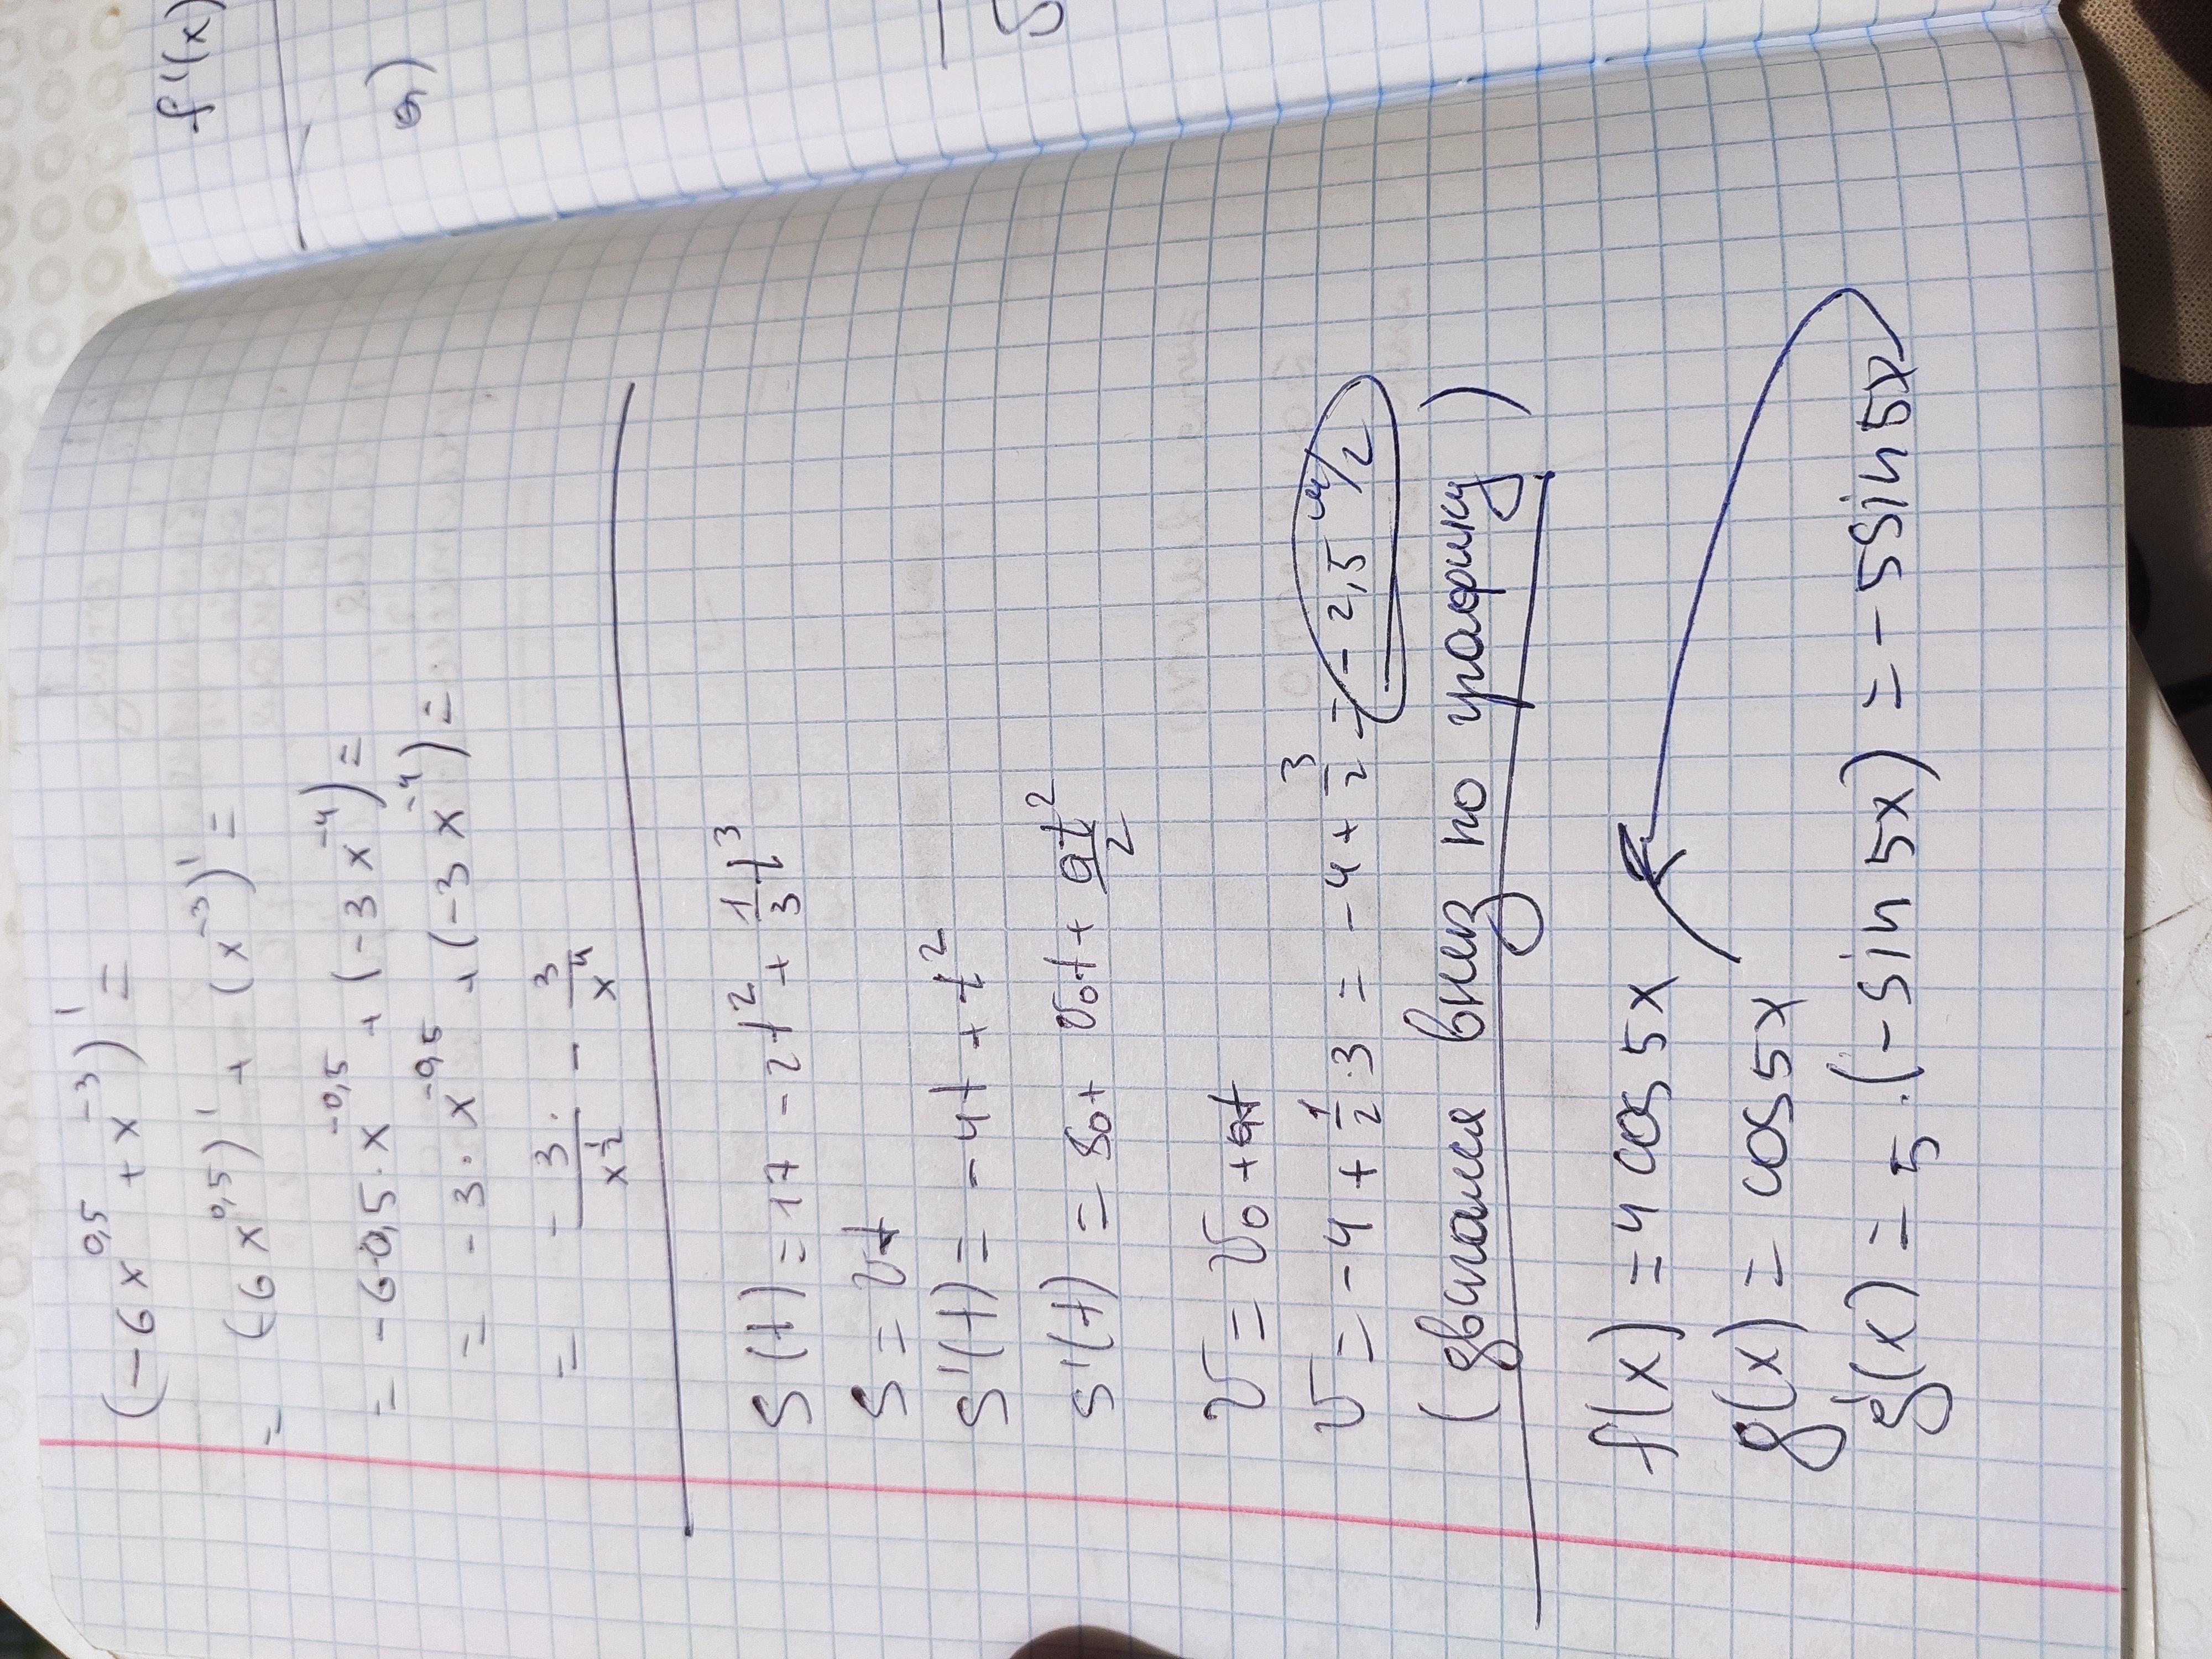 (-6x^0,5 + x^-3)' =
= (6x^0,5)' + (x^-3)' =
= -6·0,5·x^-0,5 + (-3x^-4) =
= -3·x^-0,5 + (-3x^-4) =
= -3/x^1/2 - 3/x^4
S(t) = 17 - 2t² + 1/3 t³
S = vt
S'(t) = -4t + t²
S'(t) = S₀ + v₀t + at²/2
v = v₀ + at
v = -4 + 1/2·3 = -4 + 3/2 = -2,5 м/2
(двигался вниз по графику)
f(x) = 4 cos 5x
g(x) = cos 5x
g'(x) = 5·(-sin 5x) = -5 sin 5x
f'(x)